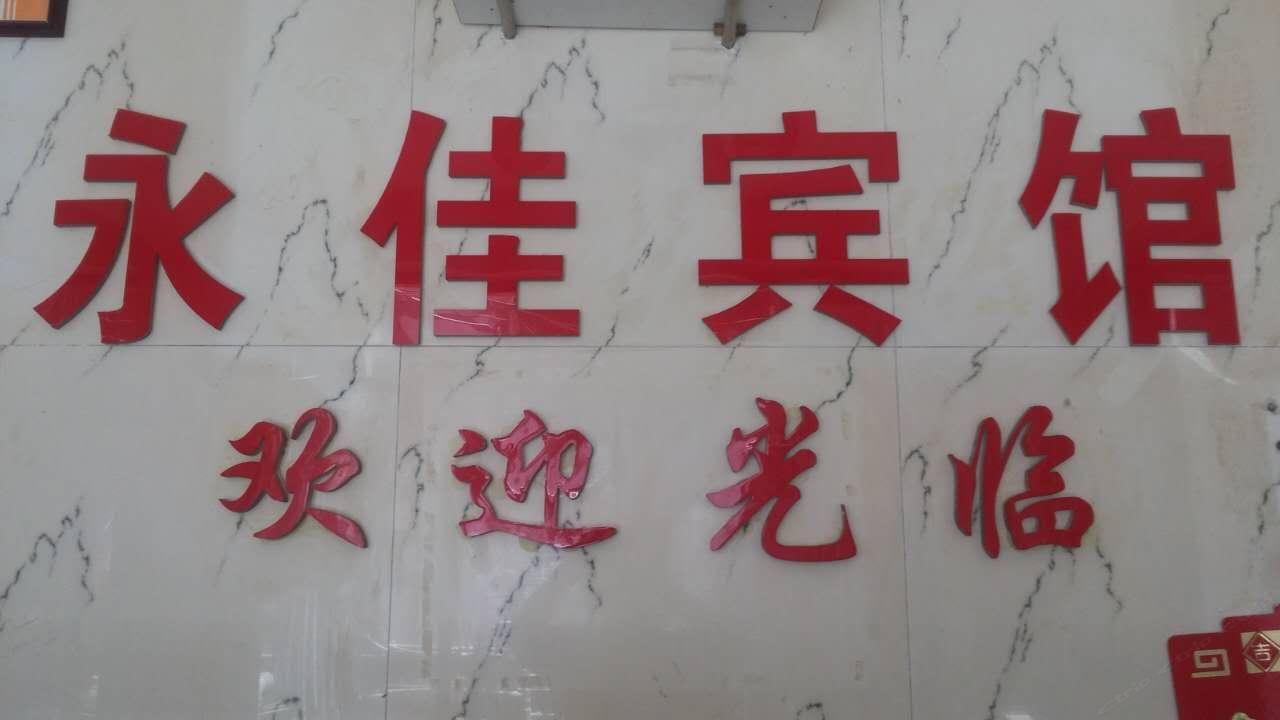 永佳宾馆
欢迎光临
吉